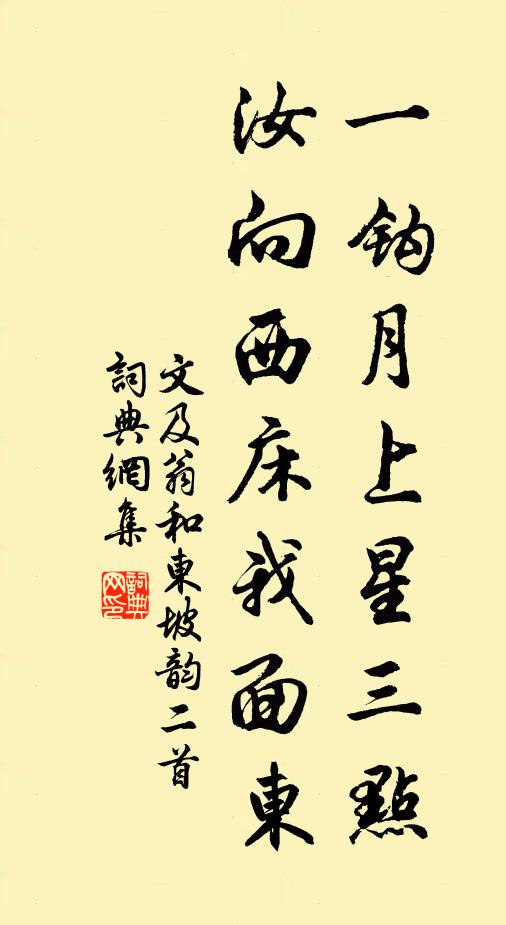 一鈎月上星三點
汝向西床我面東
文及翁和東坡韵二首
詞典網集
詞典网印